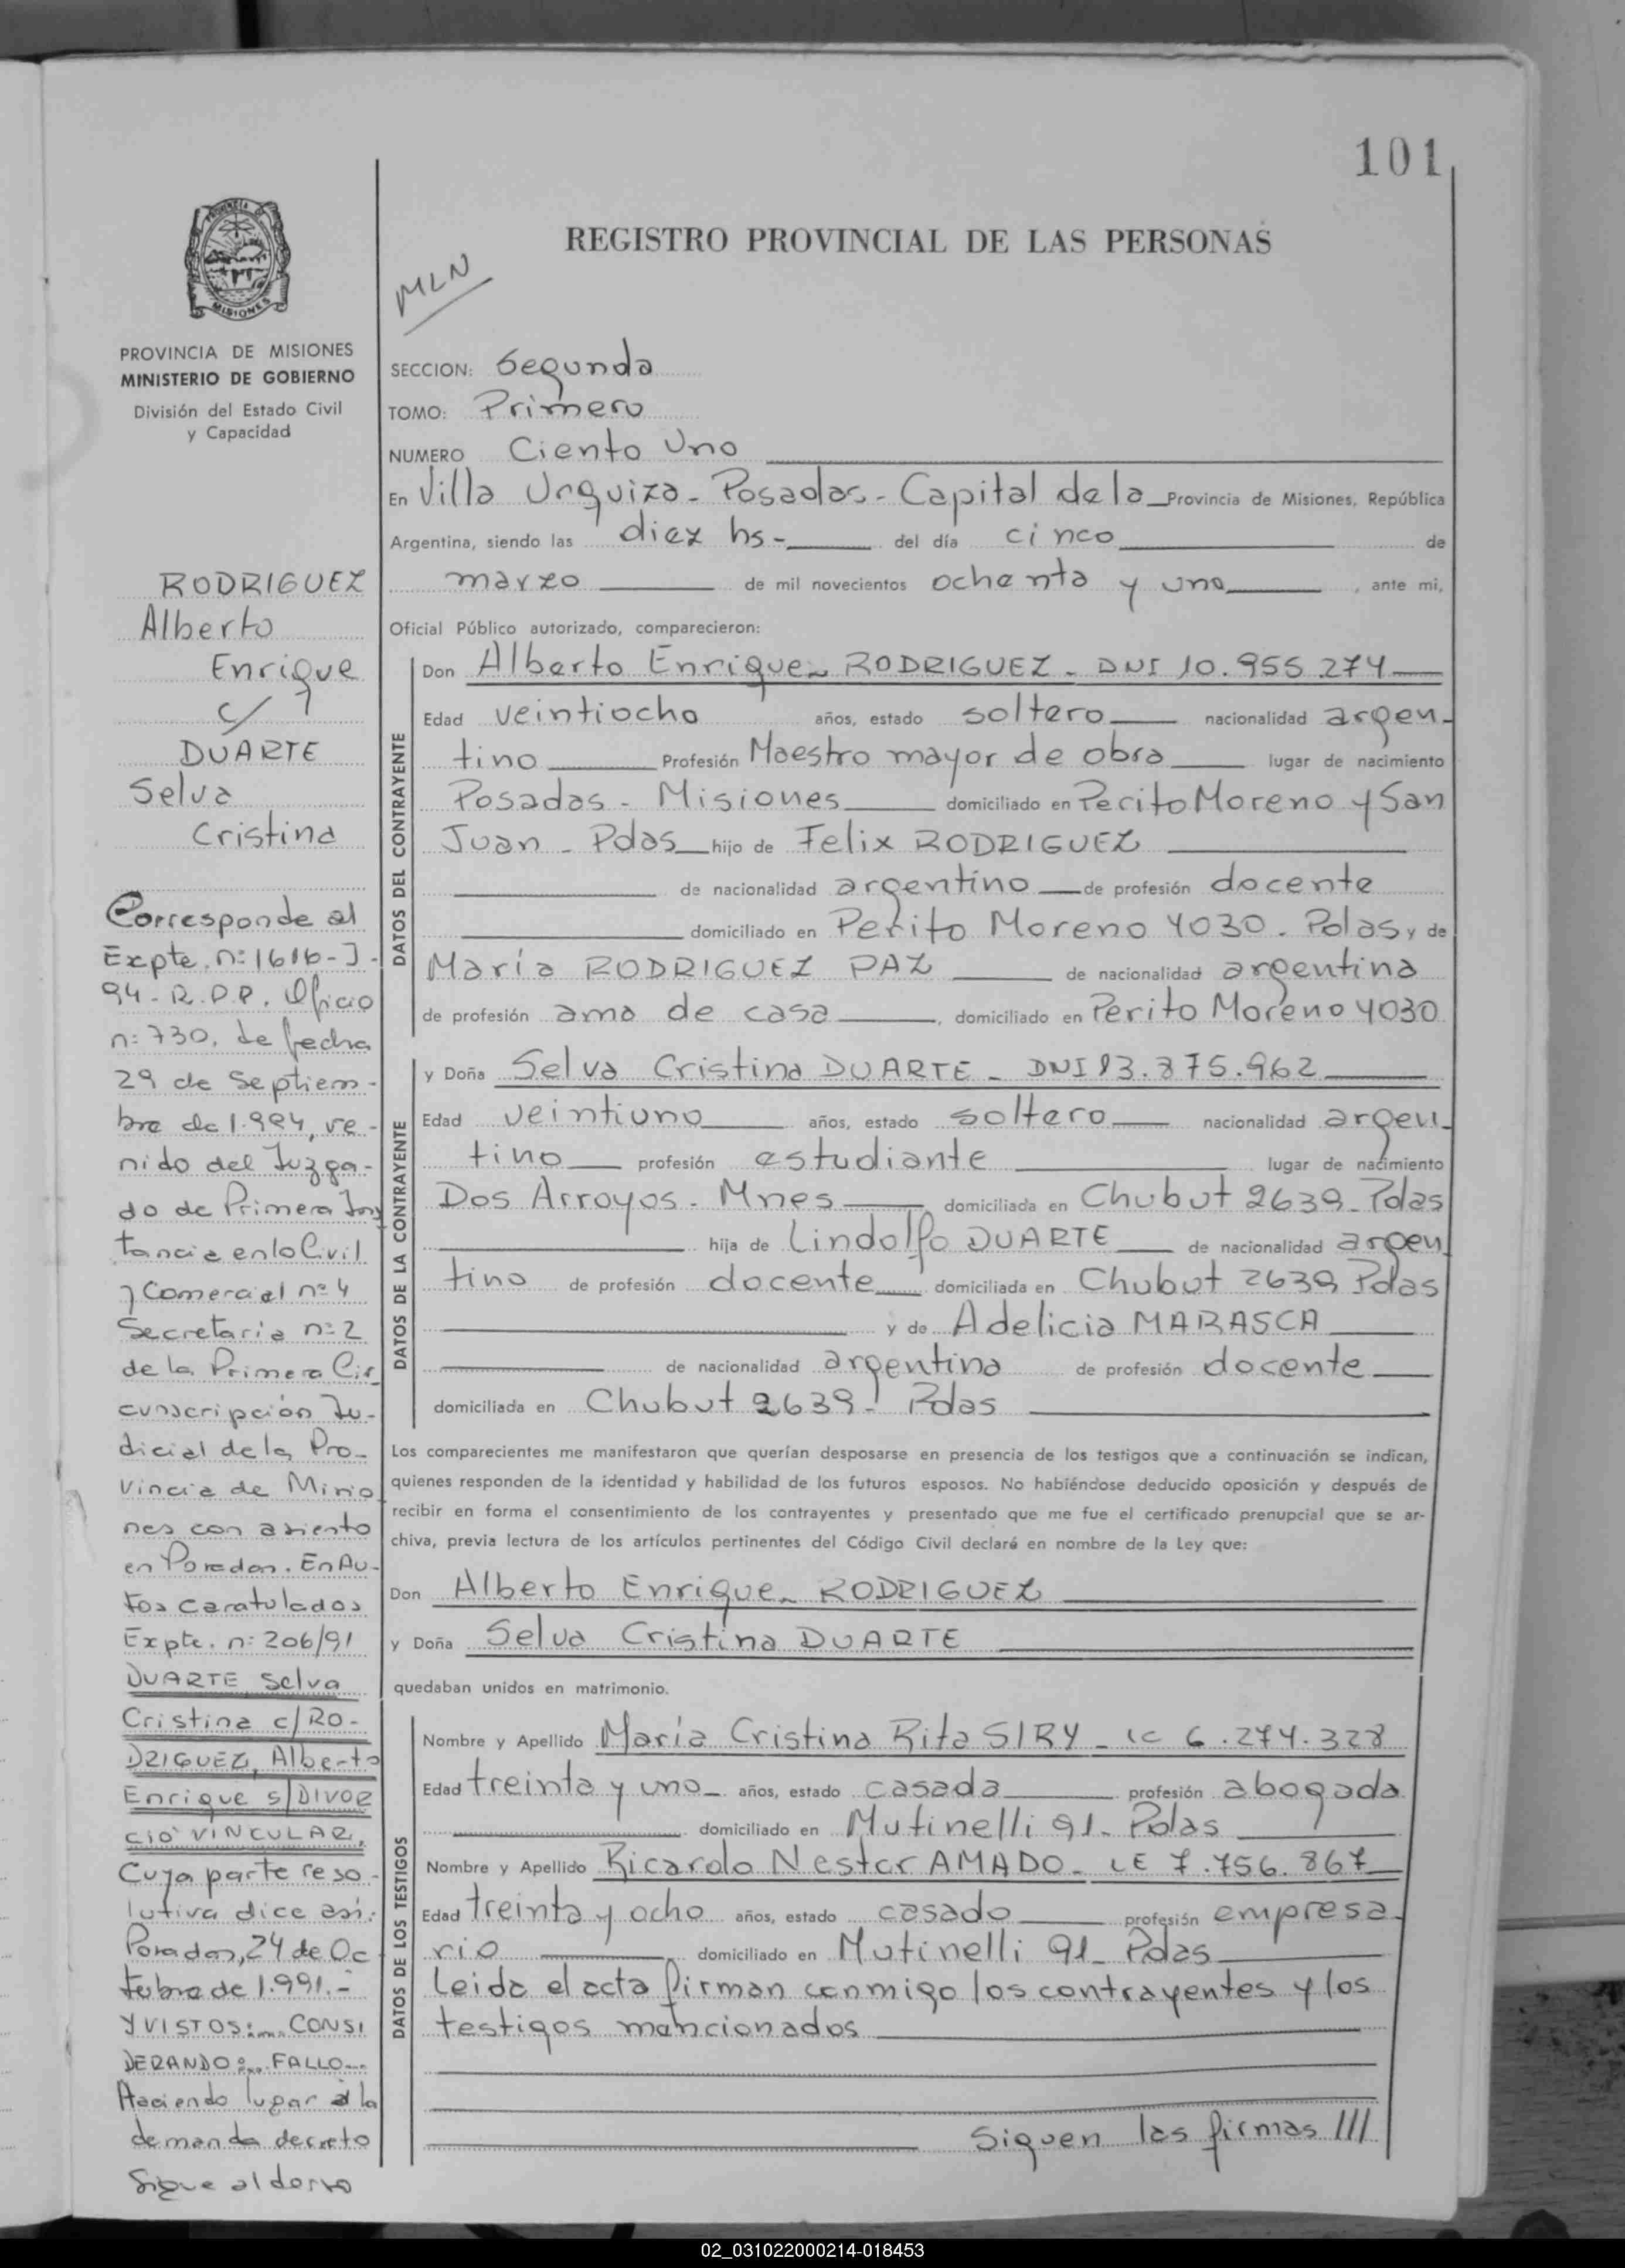 101
REGISTRO PROVINCIAL DE LAS PERSONAS
MLN
MISIONES
PROVINCIA DE MISIONES
MINISTERIO DE GOBIERNO
División del Estado Civil
y Capacidad
RODRIGUEZ
Alberto
Enrique
c/
DUARTE
Selva
Cristina
Corresponde al
Expte. n: 1616-J-
94-R.P.P. Oficio
n: 730, de fecha
29 de Septiem-
bre de 1.994, ve-
nido del Juzga-
do de Primera Ins
tancia en lo Civil
y Comercial nº 4
Secretaria nº 2
de la Primera Cir
cunscripción Ju-
dicial de la Pro-
vincia de Misio
nes con asiento
en Posadas. En Au-
tos caratulados
Expte. n: 206/91
DUARTE Selva
Cristina c/RO-
DRIGUEZ, Alberto
Enrique s/DIVOR
CIO VINCULAR,
Cuya parte reso-
lutiva dice así:
Posadas, 24 de Oc
tubre de 1.991.-
Y VISTOS:.... CONSI
DERANDO:... FALLO...
Haciendo lugar a la
demanda decreto
Sigue al dorso
SECCION: Segunda
TOMO: Primero
NUMERO Ciento Uno
En Villa Urquiza - Posadas - Capital de la Provincia de Misiones, República
Argentina, siendo las diez hs - del día cinco de
marzo de mil novecientos ochenta y uno, ante mi,
Oficial Público autorizado, comparecieron:
DATOS DEL CONTRAYENTE
Don Alberto Enrique RODRIGUEZ - DNI 10.955.274
Edad veintiocho años, estado soltero nacionalidad argen-
tino Profesión Maestro mayor de obra lugar de nacimiento
Posadas - Misiones domiciliado en Perito Moreno y San
Juan - Pdas hijo de Felix RODRIGUEZ
de nacionalidad argentino de profesión docente
domiciliado en Perito Moreno 4030. Pdas y de
María RODRIGUEZ PAZ de nacionalidad argentina
de profesión ama de casa, domiciliado en Perito Moreno 4030
DATOS DE LA CONTRAYENTE
y Doña Selva Cristina DUARTE - DNI 13.375.962
Edad veintiuno años, estado soltero nacionalidad argen-
tino profesión estudiante lugar de nacimiento
Dos Arroyos - Mnes domiciliada en Chubut 2639 - Pdas
hija de Lindolfo DUARTE de nacionalidad argen
tino de profesión docente domiciliada en Chubut 2639 Pdas
y de Adelicia MARASCA
de nacionalidad argentina de profesión docente
domiciliada en Chubut 2639 - Pdas
Los comparecientes me manifestaron que querían desposarse en presencia de los testigos que a continuación se indican,
quienes responden de la identidad y habilidad de los futuros esposos. No habiéndose deducido oposición y después de
recibir en forma el consentimiento de los contrayentes y presentado que me fue el certificado prenupcial que se ar-
chiva, previa lectura de los artículos pertinentes del Código Civil declaré en nombre de la Ley que:
Don Alberto Enrique RODRIGUEZ
y Doña Selva Cristina DUARTE
quedaban unidos en matrimonio.
DATOS DE LOS TESTIGOS
Nombre y Apellido María Cristina Rita SIRY - LC 6.274.328
Edad treinta y uno años, estado casada profesión abogada
domiciliado en Mutinelli 91 - Pdas
Nombre y Apellido Ricardo Nestor AMADO - LE 7.756.867
Edad treinta y ocho años, estado casado profesión empresa-
rio domiciliado en Mutinelli 91 - Pdas
Leida el acta firman conmigo los contrayentes y los
testigos mencionados
Siguen las firmas ///
02_031022000214-018453